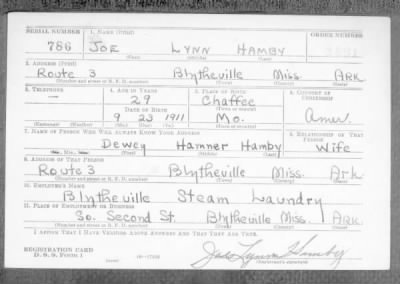 SERIAL NUMBER 1. NAME (Print) ORDER NUMBER
786 JOE LYNN HAMBY
(First) (Middle) (Last)
2. ADDRESS (Print)
Route 3 Blytheville Miss. ARK
(Number and street or R. F. D. number) (Town) (County) (State)
3. TELEPHONE 4. AGE IN YEARS 5. PLACE OF BIRTH 6. COUNTRY OF CITIZENSHIP
— 29 Chaffee
DATE OF BIRTH (Town or county)
9 23 1911 Mo. Amer.
(Exchange) (Number) (Mo.) (Day) (Yr.) (State or country)
7. NAME OF PERSON WHO WILL ALWAYS KNOW YOUR ADDRESS 8. RELATIONSHIP OF THAT PERSON
Dewey Hamner Hamby Wife
(Mr., Mrs., Miss) (First) (Middle) (Last)
9. ADDRESS OF THAT PERSON
Route 3 Blytheville Miss. Ark
(Number and street or R. F. D. number) (Town) (County) (State)
10. EMPLOYER'S NAME
Blytheville Steam Laundry
11. PLACE OF EMPLOYMENT OR BUSINESS
So. Second St. Blytheville Miss. ARK
(Number and street or R. F. D. number) (Town) (County) (State)
I AFFIRM THAT I HAVE VERIFIED ABOVE ANSWERS AND THAT THEY ARE TRUE.
REGISTRATION CARD
D. S. S. FORM 1 Lynn Hamby
(Registrant's signature)